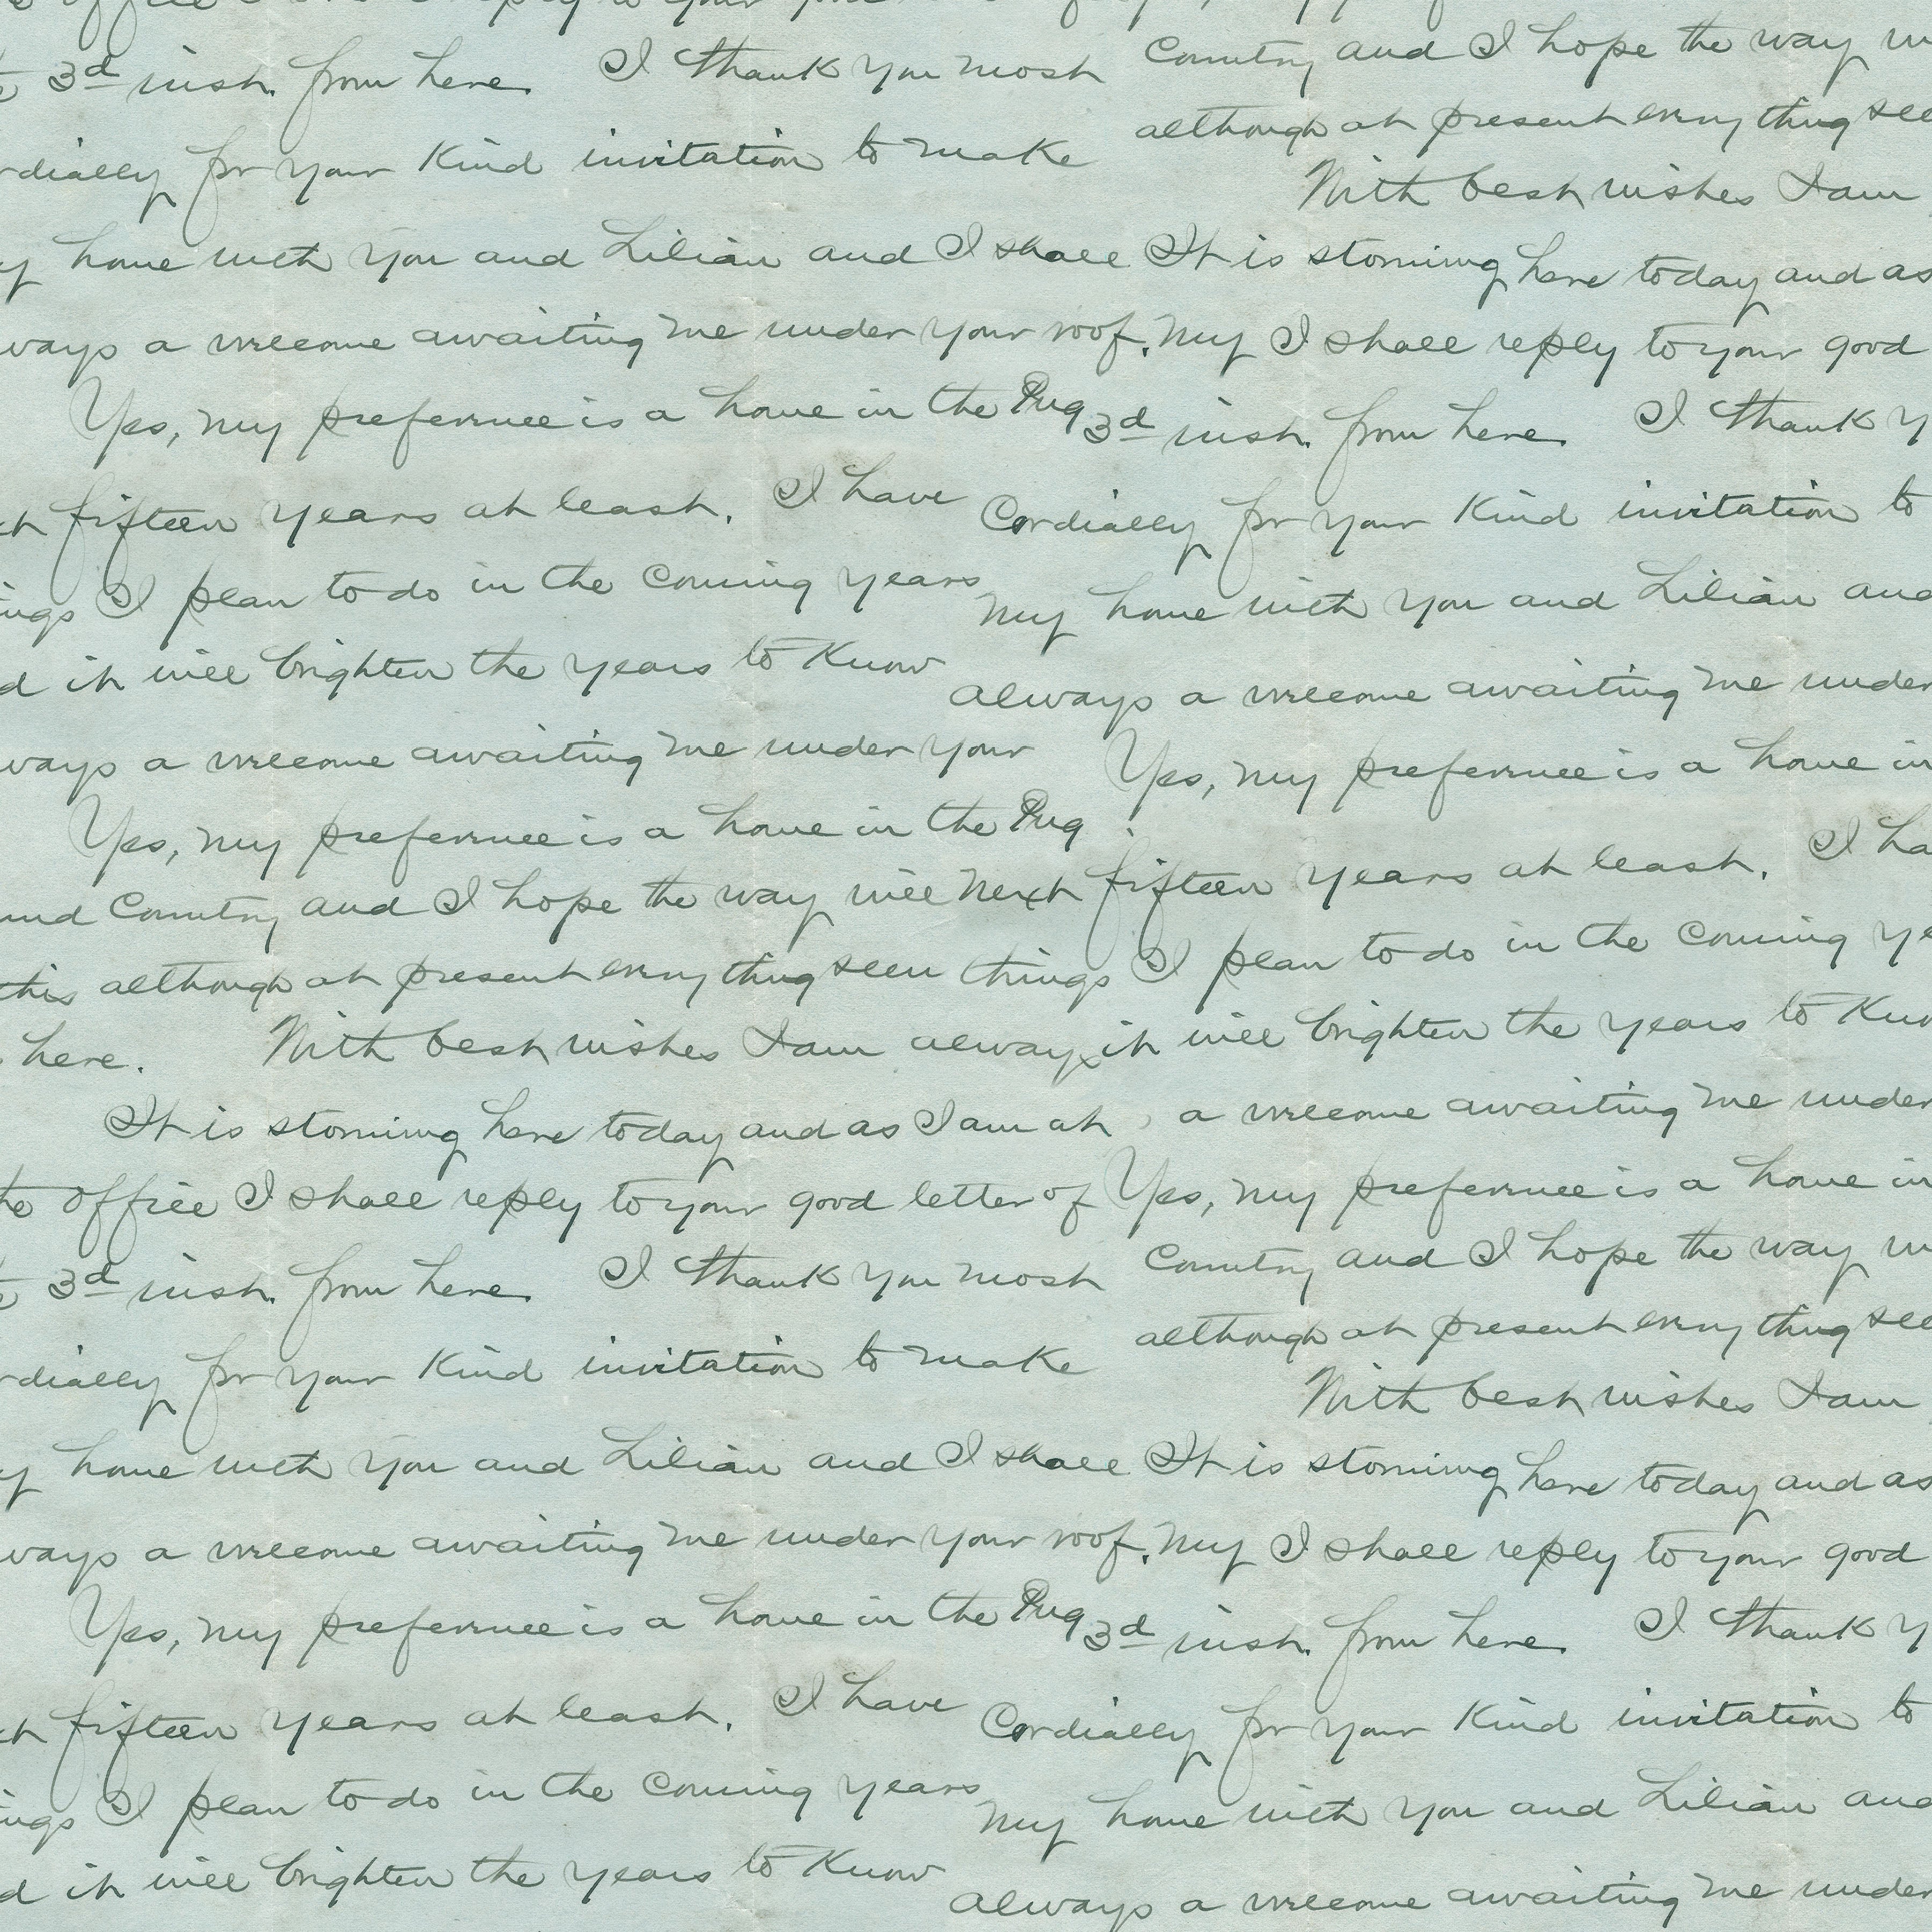 office I shall reply to your good
3d inst. from here. I thank you most Country and I hope the way
rdially for your kind invitation to make although at present every thing see
With best wishes I am
y home with you and Lilian and I shall It is storming here today and as
ways a welcome awaiting me under your roof. My I shall reply to your good
Yes, my preference is a home in the Pug 3d inst. from here. I thank y
xt fifteen years at least. I have Cordially for your kind invitation to
ings I plan to do in the coming years My home with you and Lilian and
d it will brighten the years to know always a welcome awaiting me under
ways a welcome awaiting me under your Yes, my preference is a home in
Yes, my preference is a home in the Pug
fifteen years at least. I ha
und Country and I hope the way will next
this although at present every thing seem things I plan to do in the coming ye
here. With best wishes I am always it will brighten the years to kno
It is storming here today and as I am at a welcome awaiting me under
the office I shall reply to your good letter of Yes, my preference is a home in
3d inst. from here. I thank you most Country and I hope the way
rdially for your kind invitation to make although at present every thing see
With best wishes I am
y home with you and Lilian and I shall It is storming here today and as
ways a welcome awaiting me under your roof. My I shall reply to your good
Yes, my preference is a home in the Pug 3d inst. from here. I thank y
xt fifteen years at least. I have Cordially for your kind invitation to
ings I plan to do in the coming years My home with you and Lilian and
d it will brighten the years to know always a welcome awaiting me under